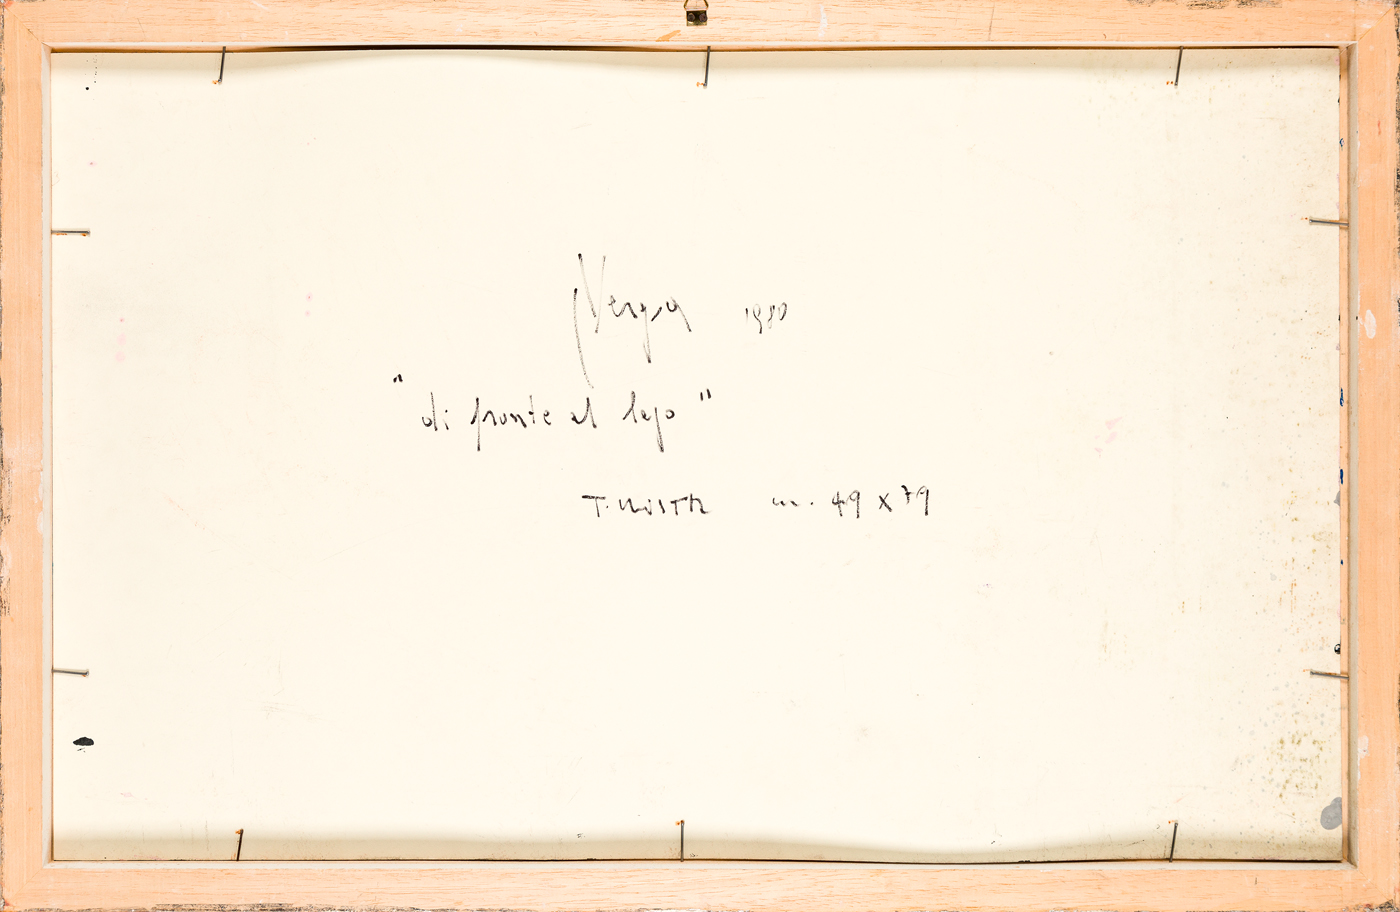 Verga 1980
"di fronte al lago"
T. MISTA m. 49 x 79